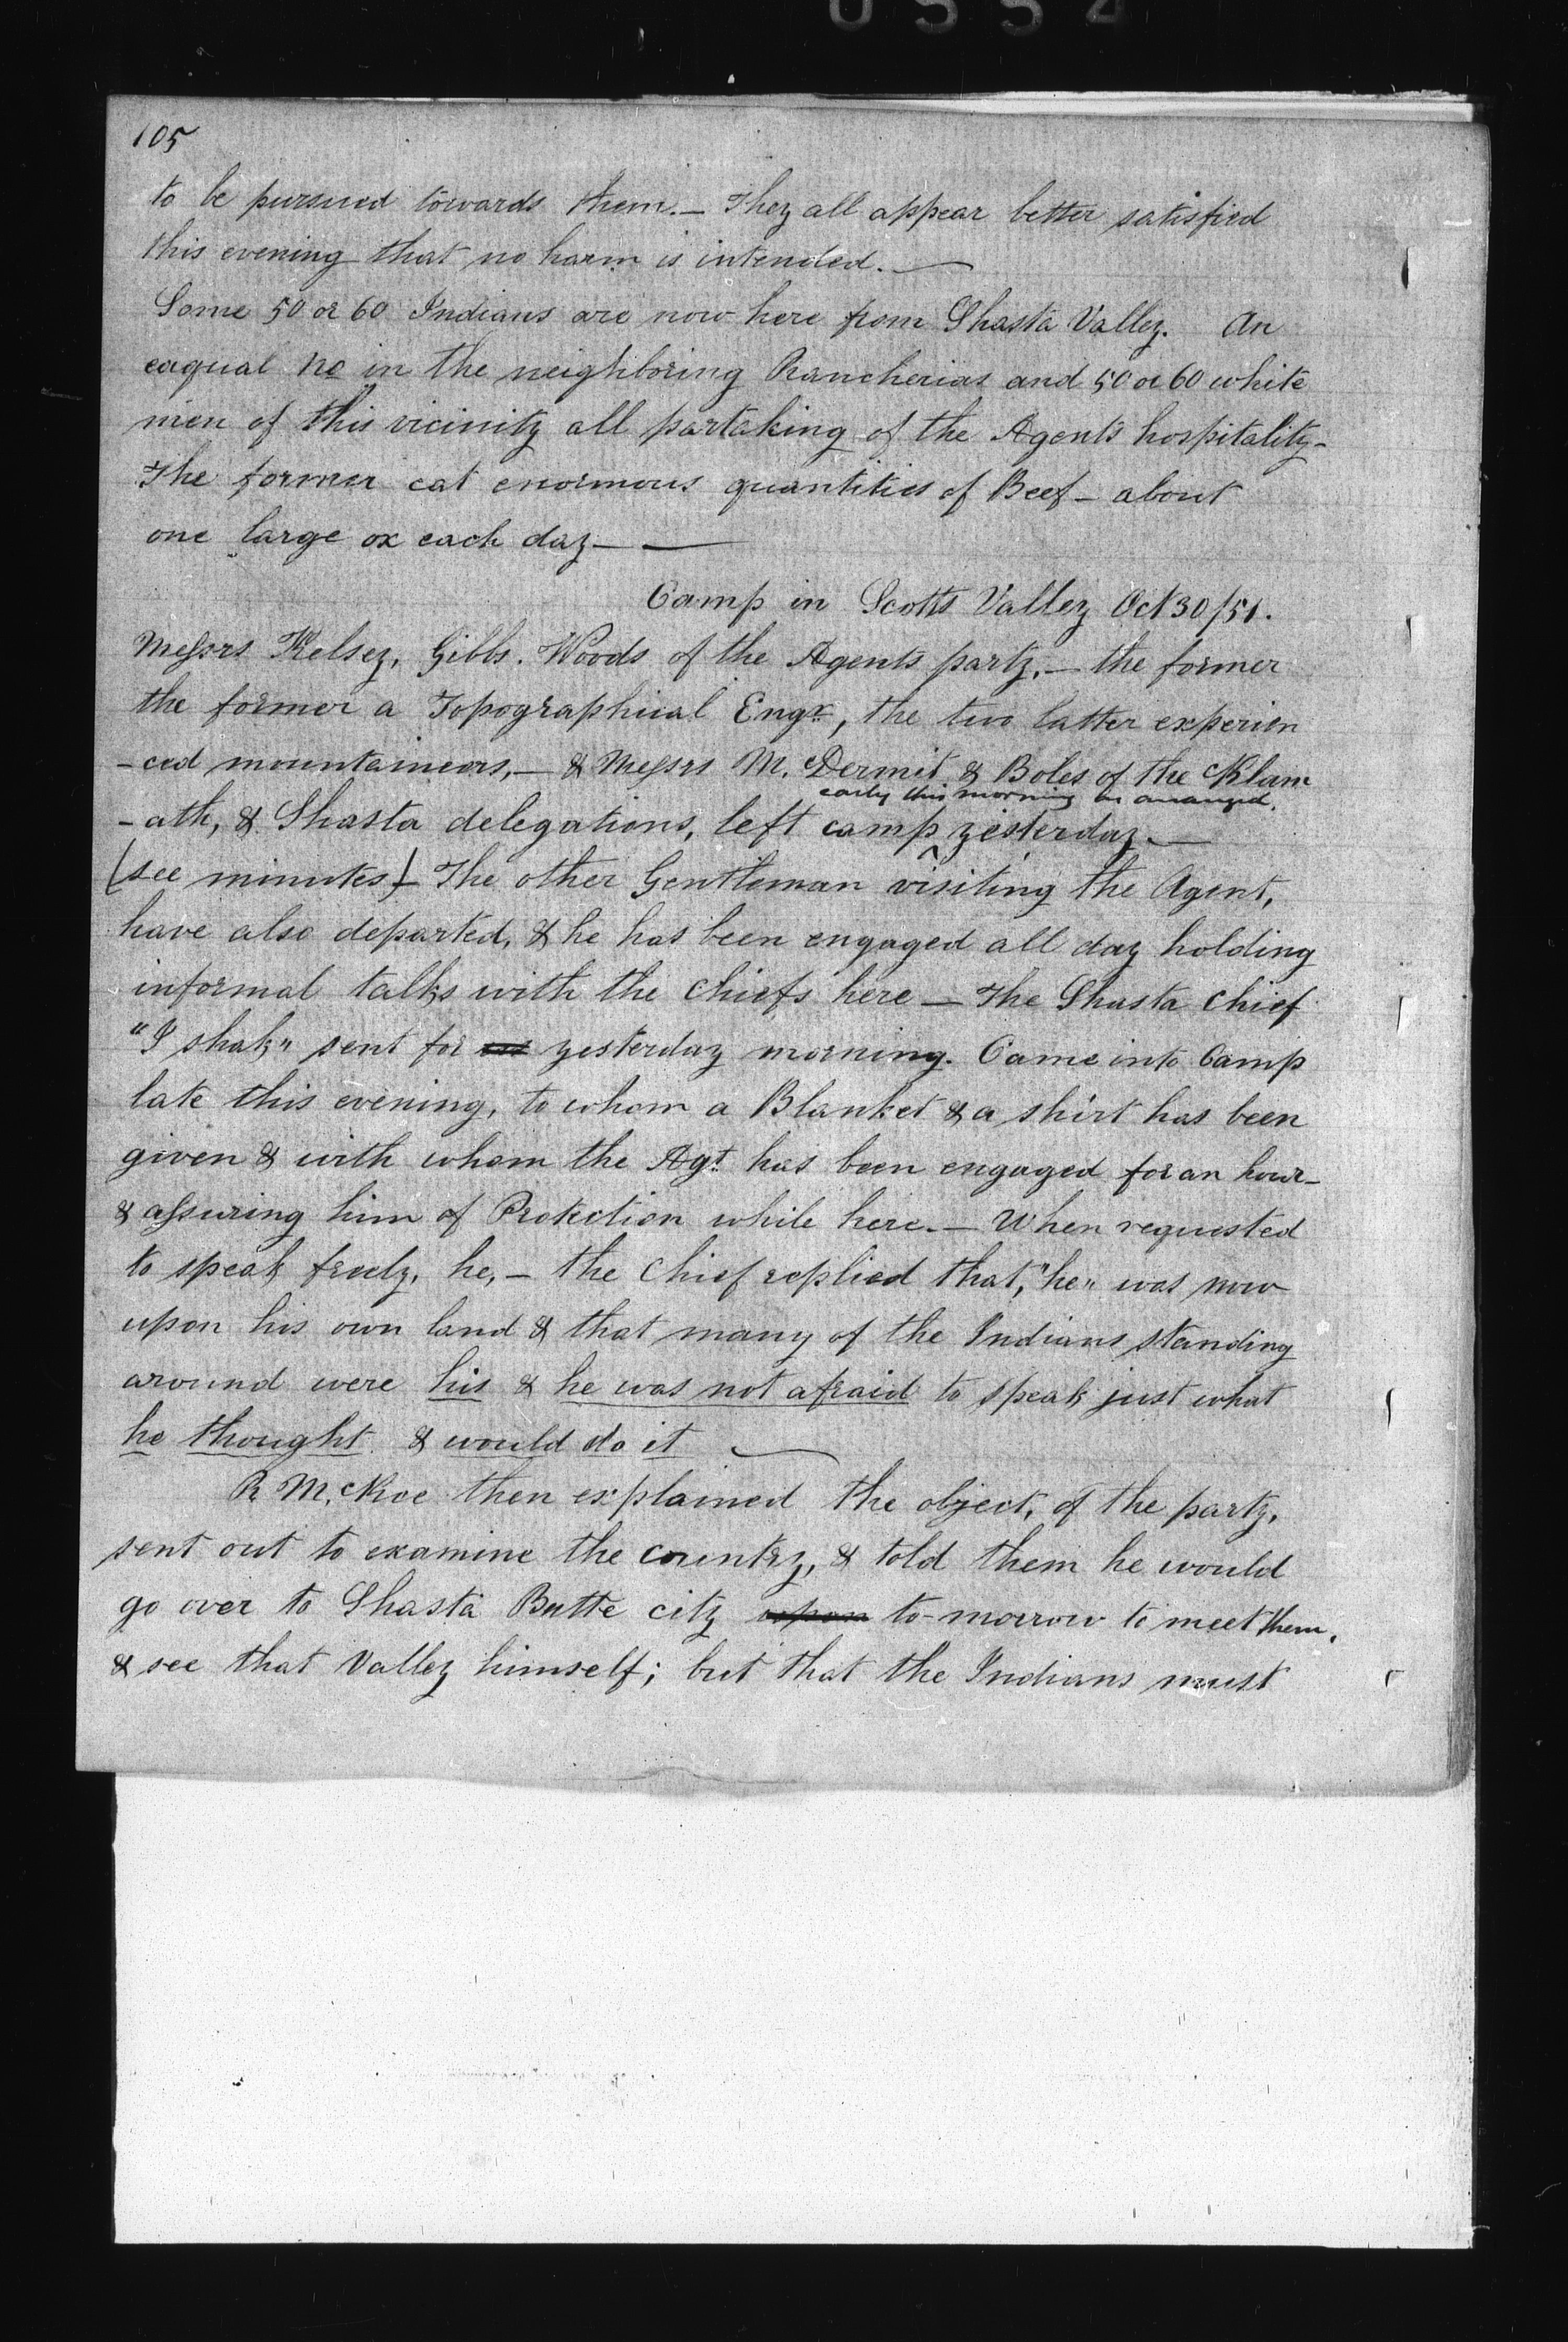 0554
105
to be pursued towards them.— They all appear better satisfied
this evening that no harm is intended.—
Some 50 or 60 Indians are now here from Shasta Valley. An
eaqual No in the neighboring Rancherias and 50 or 60 white
men of this vicinity all partaking of the Agents hospitality—
The former eat enormous quantities of Beef— about
one large ox each day— —
Camp in Scotts Valley Oct 30/51.
Messrs Kelsey, Gibbs. Woods of the Agents party,— the former
the former a Topographical Engr, the two latter experien
-ced mountaineers,— & Messrs McDermit & Boles of the Klam
early this morning as arranged.
-ath, & Shasta delegations, left camp ^ yesterday—
(see minutes)— The other Gentleman visiting the Agent,
have also departed, & he has been engaged all day holding
informal talks with the chiefs here— The Shasta Chief
"I shak" sent for yesterday morning. Came into Camp
late this evening, to whom a Blanket & a shirt has been
given & with whom the Agt has been engaged for an hour—
& assuring him of Protection while here.— When requested
to speak freely, he,— the Chief replied that, "he" was now
upon his own land & that many of the Indians standing
around were his & he was not afraid to speak just what
he thought & would do it —
R McKee then explained the object, of the party,
sent out to examine the country, & told them he would
go over to Shasta Butte city upon to-morrow to meet them.
& see that Valley himself; but that the Indians must